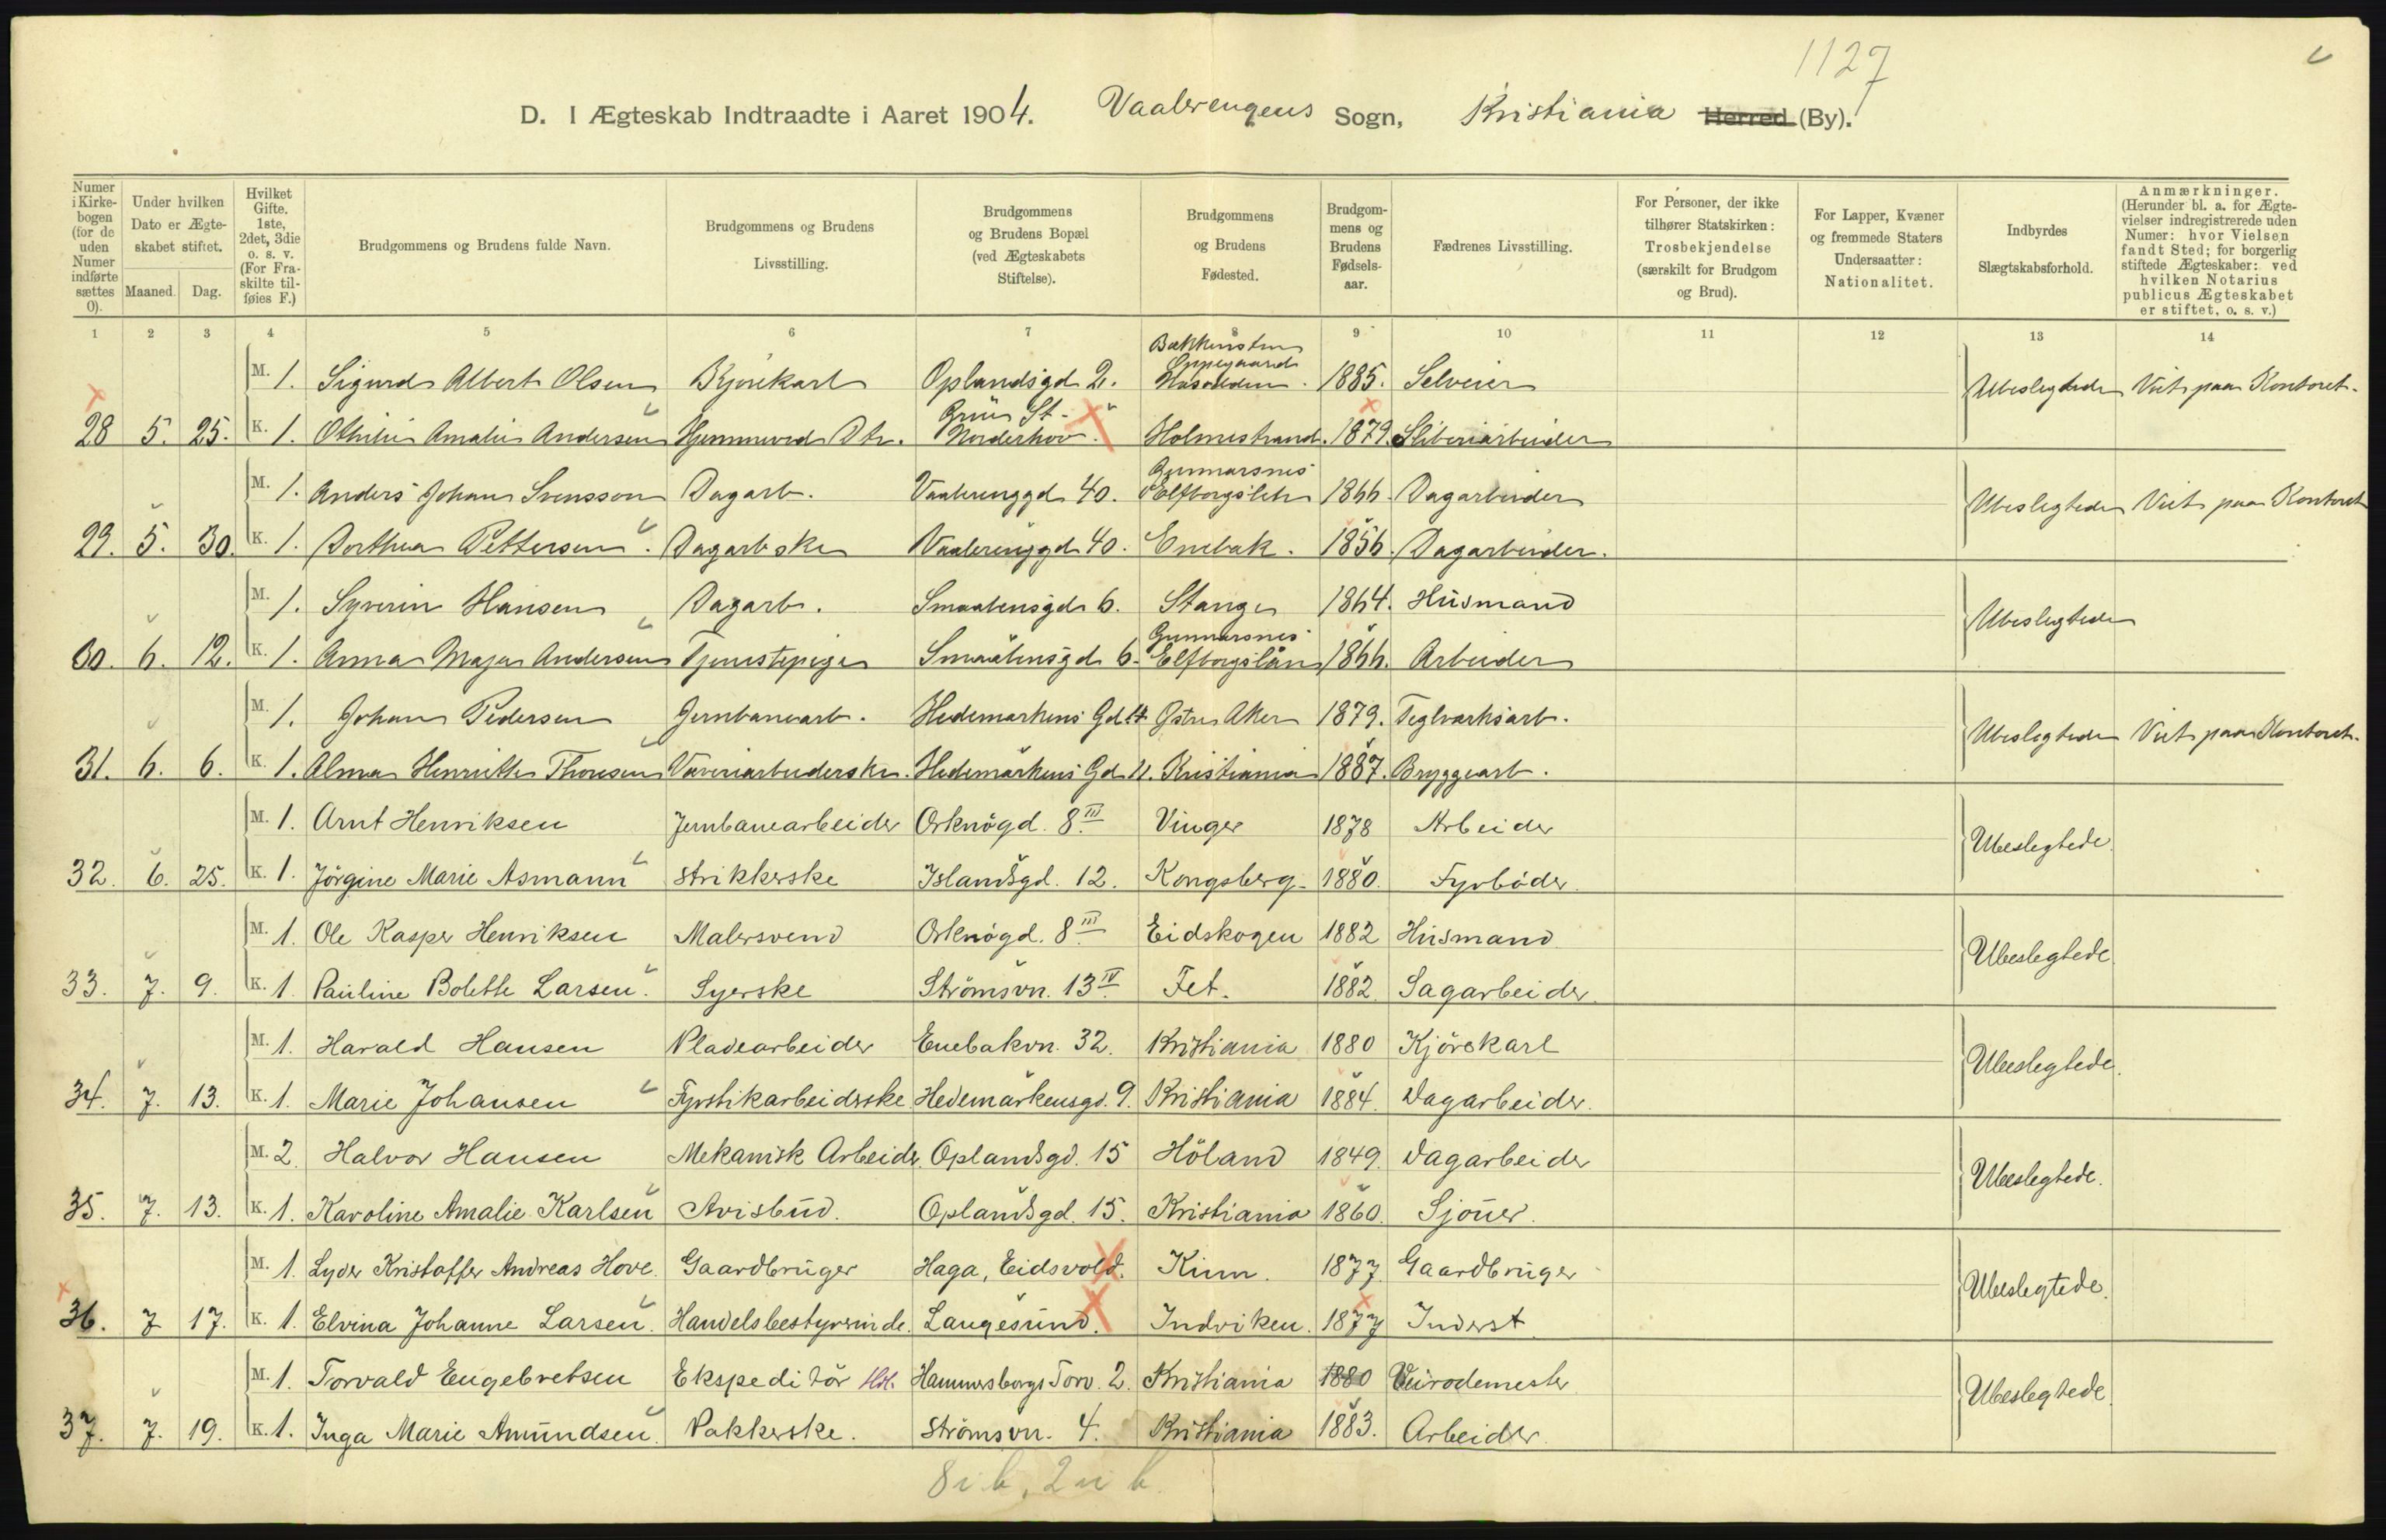 1127
D. I Ægteskab Indtraadte i Aaret 1904. Vaalerengens Sogn, Kristiania Herred (By).
Numer i Kirkebogen (for de uden Numer indførte sættes 0).
Under hvilken Dato er Ægteskabet stiftet.
Maaned. Dag.
Hvilket Gifte. 1ste, 2det, 3die o. s. v. (For Fraskilte tilføies F.)
Brudgommens og Brudens fulde Navn.
Brudgommens og Brudens Livsstilling.
Brudgommens og Brudens Bopæl (ved Ægteskabets Stiftelse).
Brudgommens og Brudens Fødested.
Brudgommens og Brudens Fødselsaar.
Fædrenes Livsstilling.
For Personer, der ikke tilhører Statskirken: Trosbekjendelse (særskilt for Brudgom og Brud).
For Lapper, Kvæner og fremmede Staters Undersaatter: Nationalitet.
Indbyrdes Slægtskabsforhold.
Anmærkninger. (Herunder bl. a. for Ægtevielser indregistrerede uden Numer: hvor Vielsen fandt Sted; for borgerlig stiftede Ægteskaber: ved hvilken Notarius publicus Ægteskabet er stiftet, o. s. v.)
1 2 3 4 5 6 7 8 9 10 11 12 13 14
M. 1. Sigurd Albert Olsen Kjørekarl Oplandsgd 2. Bækkensten Oppegaard 1885. Selveier Ubeslegtede Viet paa Kontoret.
28 5. 25. K. 1. Othilie Amalie Andersen Hjemmevd Dtr. Norderhov. Holmestrand. 1879. Sliberiarbeider
M. 1. Anders Johan Svensson Dagarb. Vaalerenggd 40. Gunnarsnes Elfborgslehn 1866. Dagarbeider Ubeslegtede Viet paa Kontoret
29. 5. 30. K. 1. Dorthea Pettersen. Dagarbske Vaalerenggd 40. Enebak. 1856. Dagarbeider.
M. 1. Syverin Hansen Dagarb. Smaalensgd 6. Stange 1864. Husmand Ubeslegtede
30. 6. 12. K. 1. Anna Maja Andersen Tjenestepige Smaalensgd 6. Gunnarsnes Elfborgslän 1866. Arbeider
M. 1. Johan Pedersen Jernbanearb. Hedemarkens Gd 14 Østre Aker 1879. Teglværksarb. Ubeslegtede Viet paa Kontoret.
31. 6. 6. K. 1. Alma Henriette Thoresen Væveriarbeiderske. Hedemarkens Gd 11. Kristiania 1887. Bryggearb.
M. 1. Arnt Henriksen Jernbanearbeider Orknögd. 8 III. Vinger 1878 Arbeider Ubeslegtede.
32. 6. 25. K. 1. Jörgine Marie Asmann Strikkerske Islandsgd. 12. Kongsberg 1880. Fyrböder.
M. 1. Ole Kasper Henriksen Malersvend Orknögd. 8 III. Eidskogen 1882 Husmand Ubeslegtede
33. 7. 9. K. 1. Pauline Bolette Larsen. Syerske Strömsvn. 13 IV. Fet. 1882. Sagarbeider.
M. 1. Harald Hansen Pladearbeider Enebakvn. 32. Kristiania 1880 Kjörekarl Ubeslegtede.
34. 7. 13. K. 1. Marie Johansen Fyrstikarbeiderske Hedemarkensgd. 9. Kristiania 1884. Dagarbeider.
M. 2. Halvor Hansen Mekanisk Arbeider. Oplandsgd. 15 Höland 1849. Dagarbeider Ubeslegtede.
35. 7. 13. K. 1. Karoline Amalie Karlsen Avisbud. Oplandsgd. 15. Kristiania 1860. Sjöuer.
M. 1. Lyder Kristoffer Andreas Hove. Gaardbruger Haga, Eidsvold. Kinn. 1877. Gaardbruger Ubeslegtede.
36. 7 17. K. 1. Elvina Johanne Larsen. Handelsbestyrerinde. Langesund. Indviken. 1877 Inderst
M. 1. Torvald Engebretsen Ekspeditör Hdl. Hammersborgs Torv. 2. Kristiania 1880 Veirodemester Ubeslegtede.
37. 7. 19. K. 1. Inga Marie Amundsen. Pakkerske. Strömsvn. 4. Kristiania 1883. Arbeider.
8 i b, 2 u b.